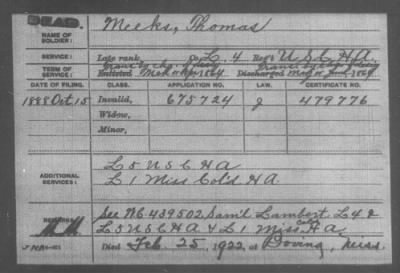 DEAD.
NAME OF SOLDIER: Meeks, Thomas
SERVICE: Late rank, Co. L. 4 Reg't U.S.C.H.A.
TERM OF SERVICE: Enlisted 1864 Discharged
DATE OF FILING. CLASS. APPLICATION NO. LAW. CERTIFICATE NO.
1888 Oct. 15 Invalid, 675724 J 479776
Widow,
Minor,
ADDITIONAL SERVICES: L 5 U S C H A
L 1 Miss Col'd H A.
REMARKS: See No. 439502 Sam'l Lambert L 4 &
L 5 U S C H A & L 1 Miss Cold H A.
Died Feb. 25, 1922, at Bovina, Miss.